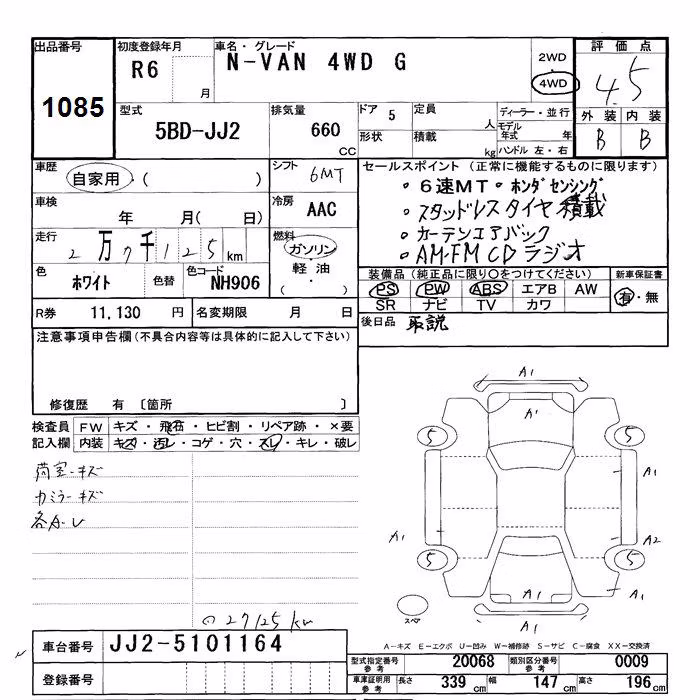 出品番号
1085
初度登録年月
R6
月
車名・グレード
N-VAN 4WD G
2WD
4WD
評価点
4.5
外装 内装
B B
型式
5BD-JJ2
排気量
660
CC
ドア 5
形状
定員
人
積載
kg
ディーラー・並行
モデル年式 年
ハンドル 左・右
車歴
自家用・( )
シフト
6MT
車検
年 月( 日)
冷房
AAC
走行
2万7千125km
燃料
ガソリン・
軽油・
( )
色
ホワイト
色替
色コード
NH906
R券 11,130 円
名変期限 月 日
セールスポイント (正常に機能するものに限ります)
・6速MT・ホンダセンシング
・スタッドレスタイヤ積載
・カーテンエアバック
・AM・FM CDラジオ
装備品(純正品に限り○をつけてください)
PS PW ABS エアB AW
SR ナビ TV カワ
新車保証書
有・無
後日品 取説
注意事項申告欄(不具合内容等は具体的に記入して下さい)
修復歴 有 〔箇所 〕
検査員
記入欄
FW キズ・飛石・ヒビ割・リペア跡・×要
内装 キズ・汚レ・コゲ・穴・スレ・キレ・破レ
荷室-キズ
カミラーキズ
各A・U
27125km
A1
A1
5 5
A1
A1 A2
5 5
A1
A1
A1
スペア
A-キズ E-エクボ U-凹み W-補修跡 S-サビ C-腐食 XX-交換済
車台番号 JJ2-5101164
登録番号
型式指定番号 参考 20068
類別区分番号 参考 0009
車庫証明用 参考 長さ 339cm 幅 147cm 高さ 196cm